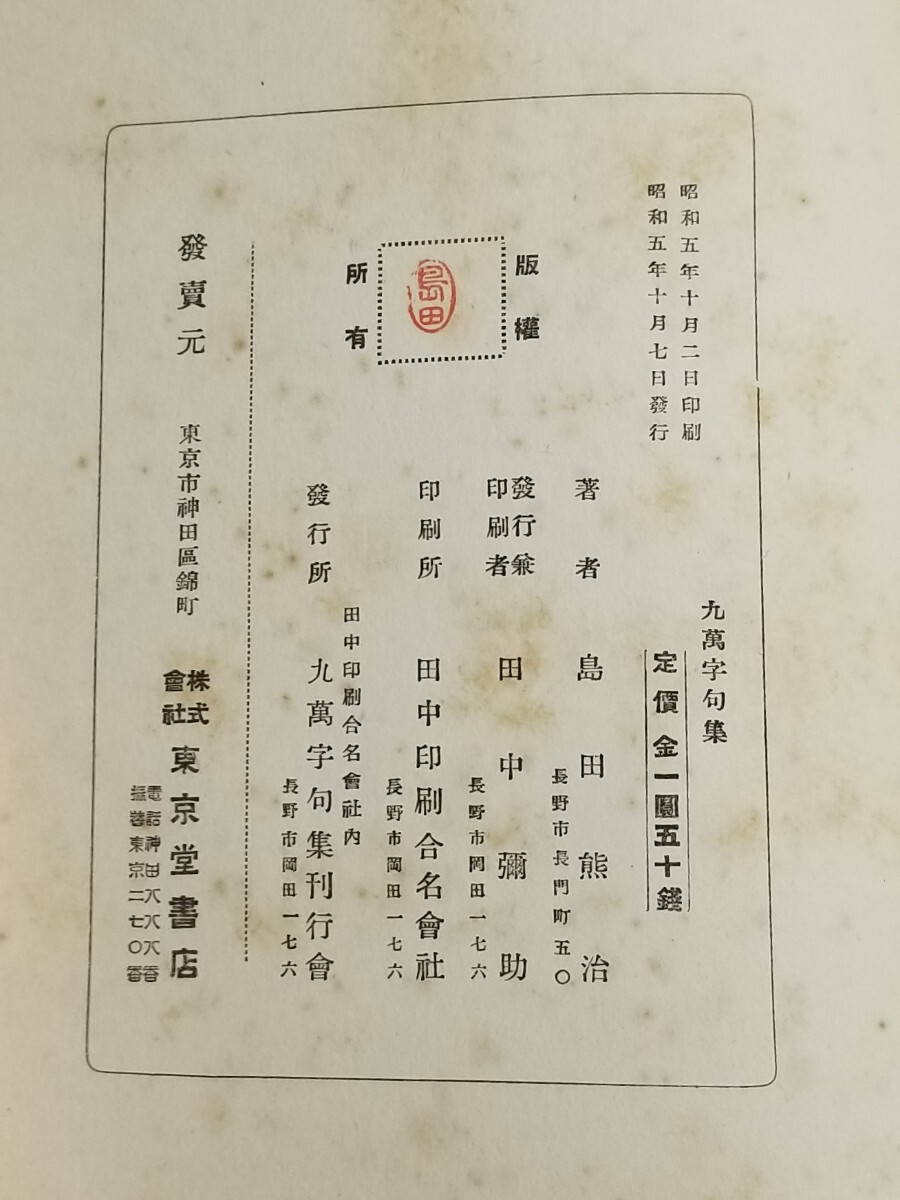 昭和五年十月二日印刷
昭和五年十月七日發行
九萬字句集
定價金一圓五十錢
版權
所有
島田
著者 島田熊治
長野市長門町五〇
發行兼
印刷者 田中彌助
長野市岡田一七六
印刷所 田中印刷合名會社
長野市岡田一七六
田中印刷合名會社內
發行所 九萬字句集刊行會
長野市岡田一七六
發賣元 東京市神田區錦町
株式
會社 東京堂書店
電話神田八八八番
振替東京二七〇番